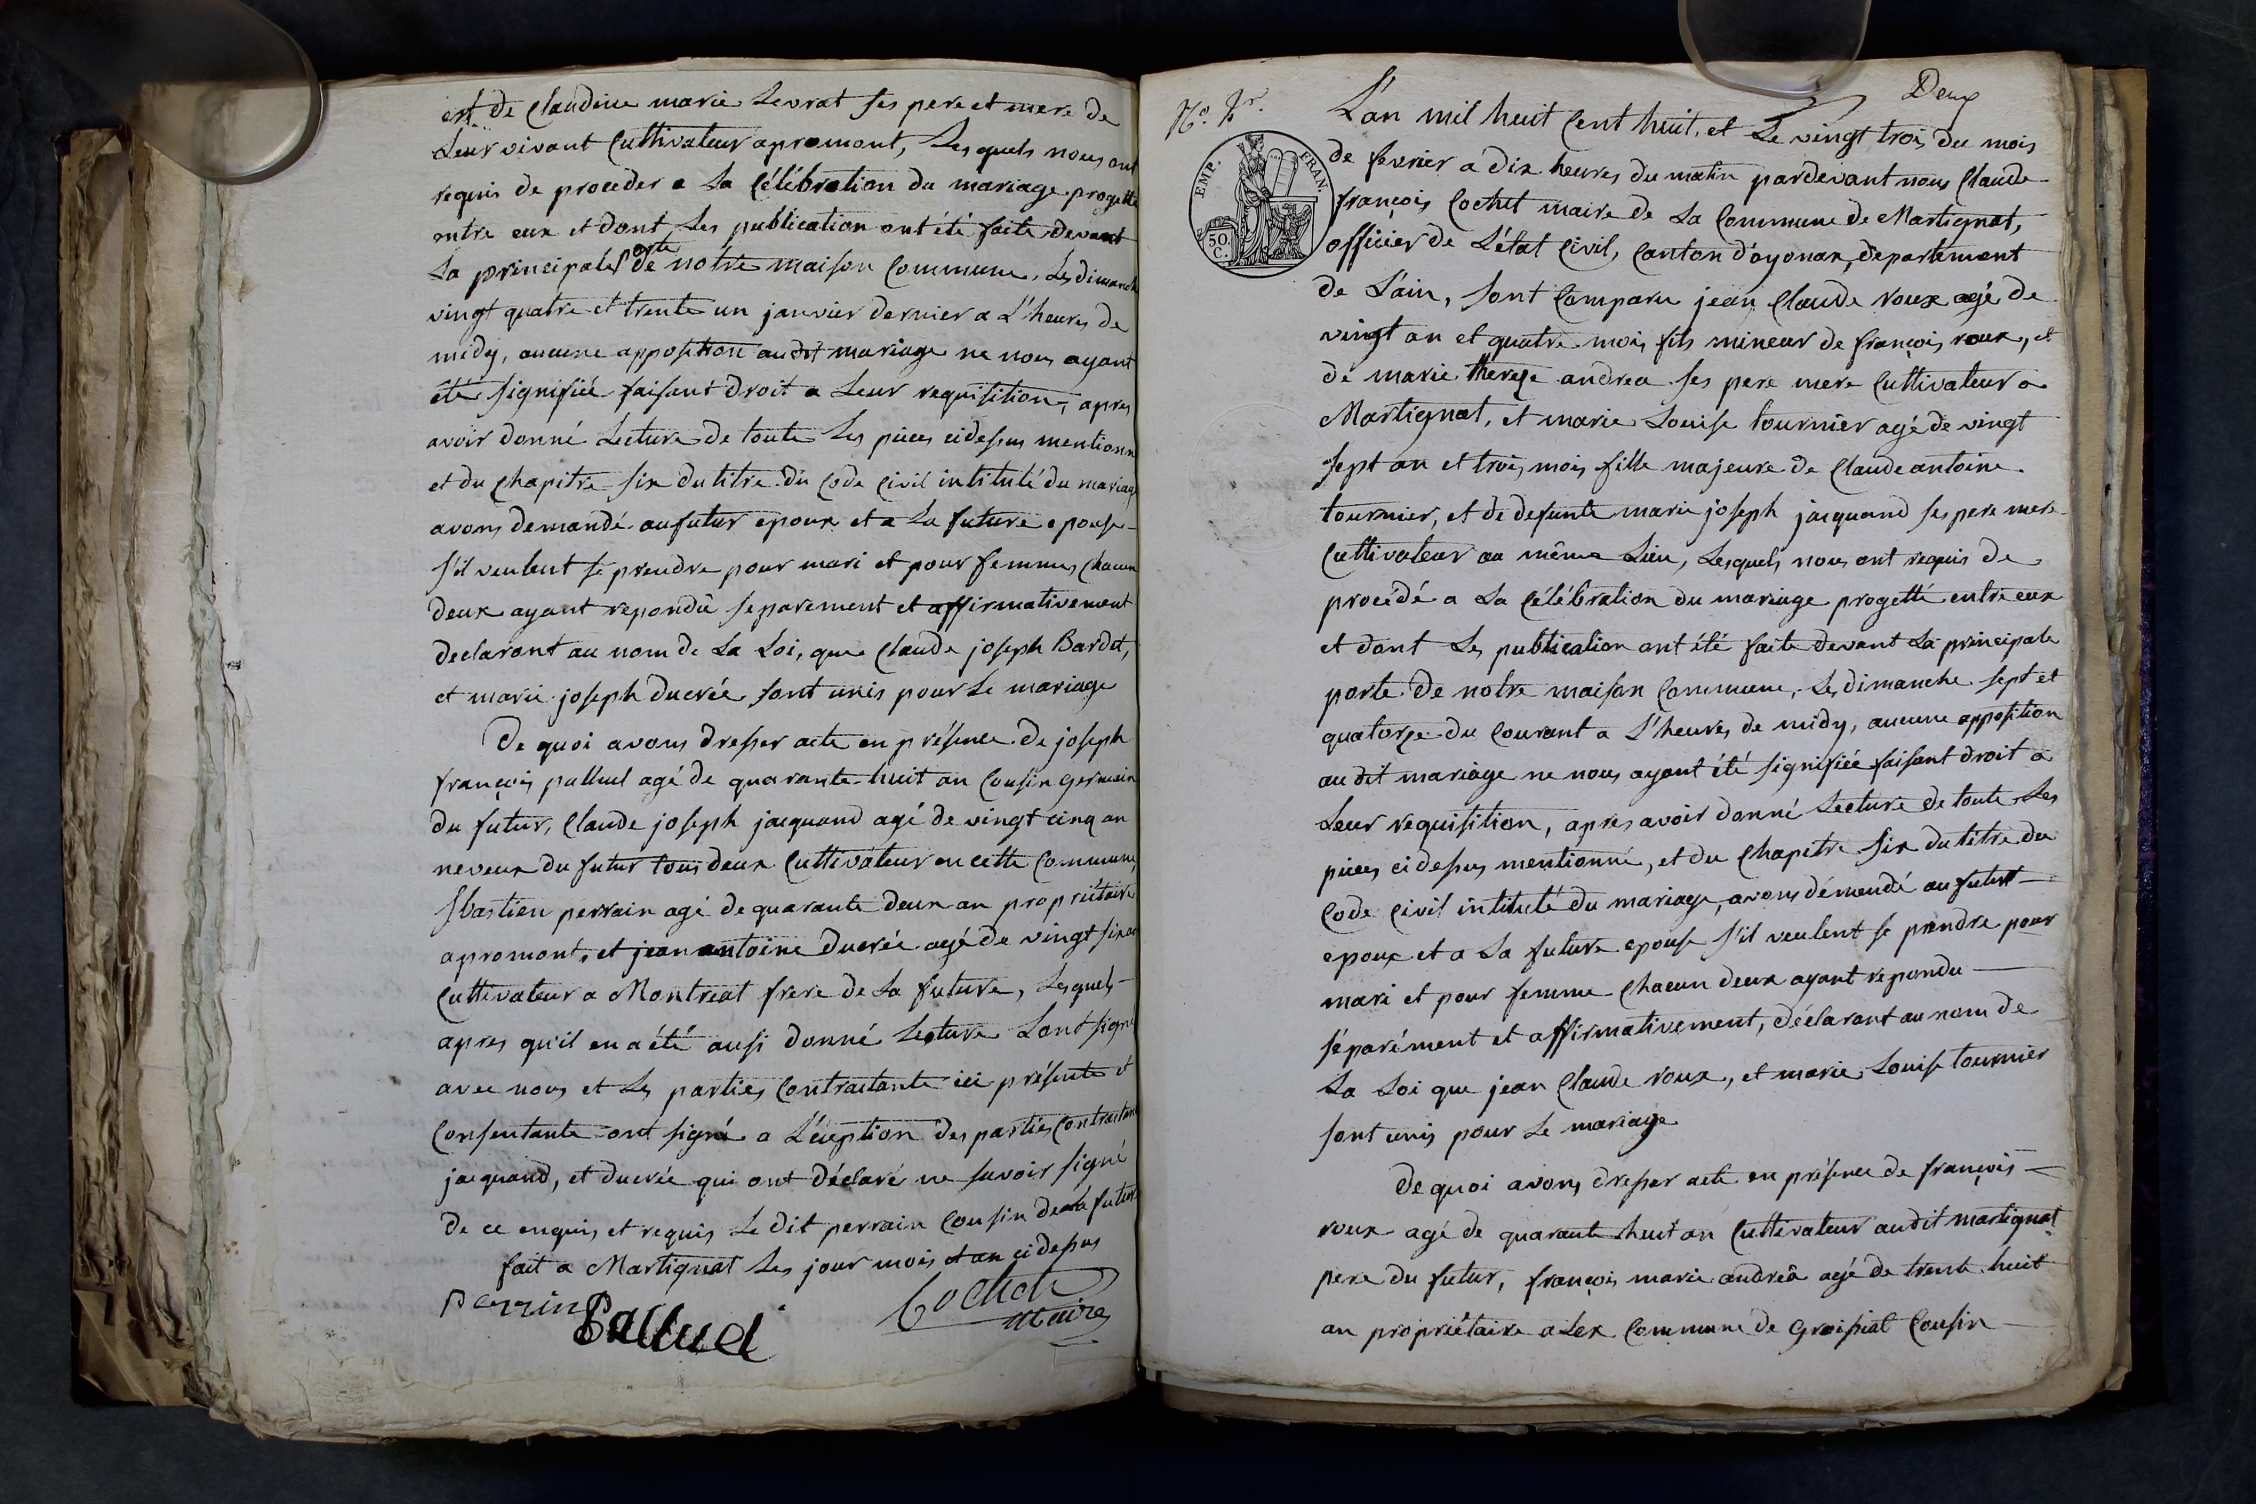 est de Claudine marie Levrat ses pere et mere de
Leur vivant Cultivateur apromont, Les quels nous ont
requis de proceder a La Célébration du mariage progetté
entre eux et dont Les publication ont été faite devant
La principale porte de notre maison Commune, Les dimanche
vingt quatre et trente un janvier dernier a L'heures de
midy, aucune apposition au dit mariage ne nous ayant
été signifiée faisant droit a Leur requisition, apres
avoir donné Lecture de toute Les pieces cidessus mentionn
et du Chapitre six du titre du Code Civil intitulé du mariage
avons demandé au futur epoux et a La future epouse
s'il veulent se prendre pour mari et pour femmes Chacun
deux ayant repondû separement et affirmativement
declaront au nom de La Loi, que Claude joseph Bardet,
et marie joseph ducrée sont unis pour Le mariage
De quoi avons dresser acte en présence de joseph
françois pallud agé de quarante huit an Cousin germain
du futur, Claude joseph jacquand agé de vingt cinq an
neveux du futur tous deux Cultivateur en cette Commune,
Sbastien perrain agé de quarante deux an propriétaire
apromont, et jean antoine ducrée agé de vingt six an
Cultivateur a Montreat frere de La future, Lesquels
apres qu'il en a été ausi donné Lecture Lont signé
avec nous et Les parties Contractante ici présente et
Consentante ont signé a L'éception des parties Contractant
jacquand, et ducrée qui ont déclaré ne savoir signé
de ce enquis et requis Le dit perrain Cousin de la future
fait a Martignat Les jour mois et an ci dessus
Perrin Pallud Cochet
Maire
Deux
N.o 2.
EMP. FRAN.
50. C.
L'an mil huit Cent huit, et Le vingt trois du mois
de fevrier a dix heures du matin pardevant nous Claude
françois Cochet maire de La Commune de Martignat,
officier de L'état Civil, Canton d'oyonax, departement
de L'ain, sont Comparu jean Claude roux agé de
vingt an et quatre mois fils mineur de françois roux, et
de marie therese andrea ses pere mere Cultivateur a
Martignat, et marie Louise tournier agé de vingt
sept an et trois mois fille majeure de Claude antoine
tournier, et de defunte marie joseph jacquand ses pere mere
Cultivateur au même Lieu, Lesquels nous ont requis de
procédé a La Célébration du mariage progetté entre eux
et dont Les publication ont été faite devant La principale
porte de notre maison Commune, Les dimanche sept et
quatorze du Courant a L'heures de midy, aucune apposition
au dit mariage ne nous ayant été signifiée faisant droit a
Leur requisition, apres avoir donné Lecture de toute Les
pieces ci dessus mentionné, et du Chapitre six du titre du
Code Civil intitulé du mariage, avons démendé au futur
epoux et a La future epouse s'il veulent se prendre pour
mari et pour femme Chacun deux ayant repondu
séparément et affirmativement, déclaront au nom de
La Loi que jean Claude roux, et marie Louise tournier
sont unis pour Le mariage
De quoi avons dresser acte en présence de françois
roux agé de quarante huit an Cultivateur audit martignat
pere du futur, françois marie andréa agé de trente huit
an propriétaire a Lex Commune de Groissiat Cousin